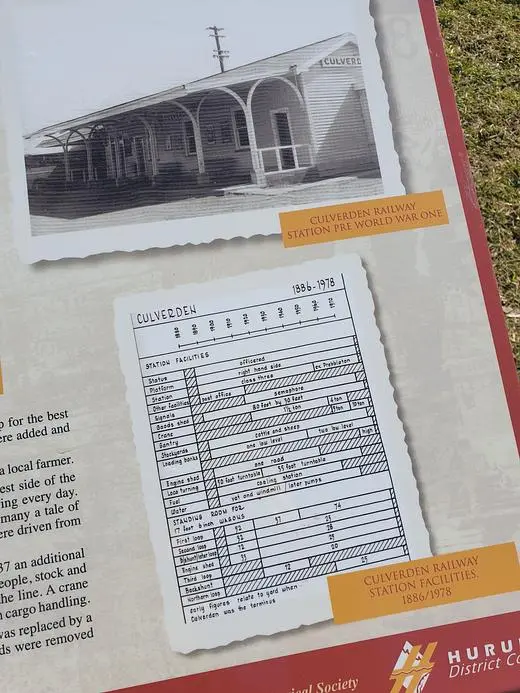 CULVERDEN
CULVERDEN RAILWAY
STATION PRE WORLD WAR ONE
CULVERDEN 1886-1978
1880 1890 1900 1910 1920 1930 1940 1950 1960 1970
STATION FACILITIES
Status officered
Platform right hand side
Station class three ex Prebbleton
Other facilities post office
Signals semaphore
Goods shed 80 feet by 30 feet
Crane 1½ ton 4ton
Gantry 5ton 10ton
Stockyards cattle and sheep
Loading banks one low level two low level high
Engine shed one road
Loco turning 50 foot turntable 55 foot turntable
Fuel coaling station
Water vat and windmill / later pumps
STANDING ROOM FOR
17 feet 6 inch WAGONS
First loop 52 74
Second loop 52 25
Engine shed
Third loop 12
Backshunt
Northern loop 25
early figures relate to yard when
Culverden was the terminus
CULVERDEN RAILWAY
STATION FACILITIES.
1886/1978
p for the best
ere added and
a local farmer.
est side of the
ing every day.
many a tale of
ere driven from
37 an additional
eople, stock and
the line. A crane
n cargo handling.
was replaced by a
ds were removed
ical Society
HURU
District Co